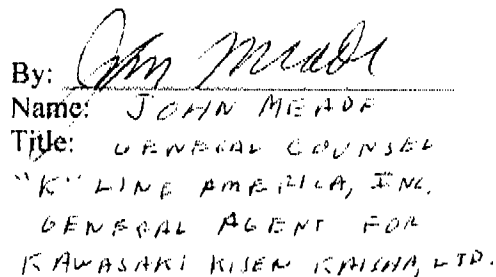 By: John Meade
Name: JOHN MEADE
Title: GENERAL COUNSEL
"K" LINE AMERICA, INC.
GENERAL AGENT FOR
KAWASAKI KISEN KAISHA, LTD.